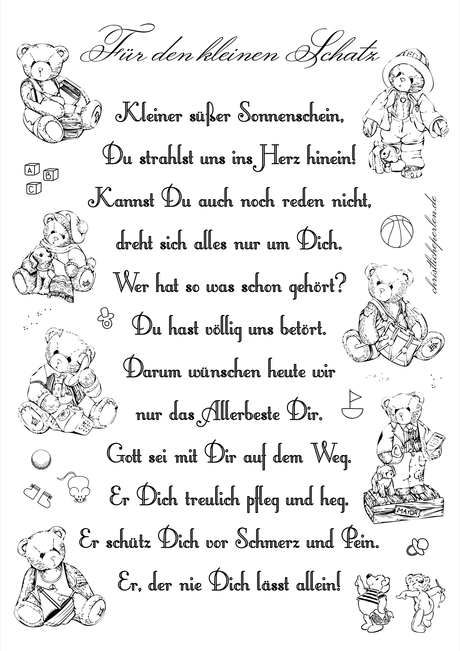 Für den kleinen Schatz
Kleiner süßer Sonnenschein,
Du strahlst uns ins Herz hinein!
Kannst Du auch noch reden nicht,
dreht sich alles nur um Dich.
Wer hat so was schon gehört?
Du hast völlig uns betört.
Darum wünschen heute wir
nur das Allerbeste Dir.
Gott sei mit Dir auf dem Weg.
Er Dich treulich pfleg und heg,
Er schütz Dich vor Schmerz und Pein.
Er, der nie Dich lässt allein!
A
B
C
christlicheperlen.de